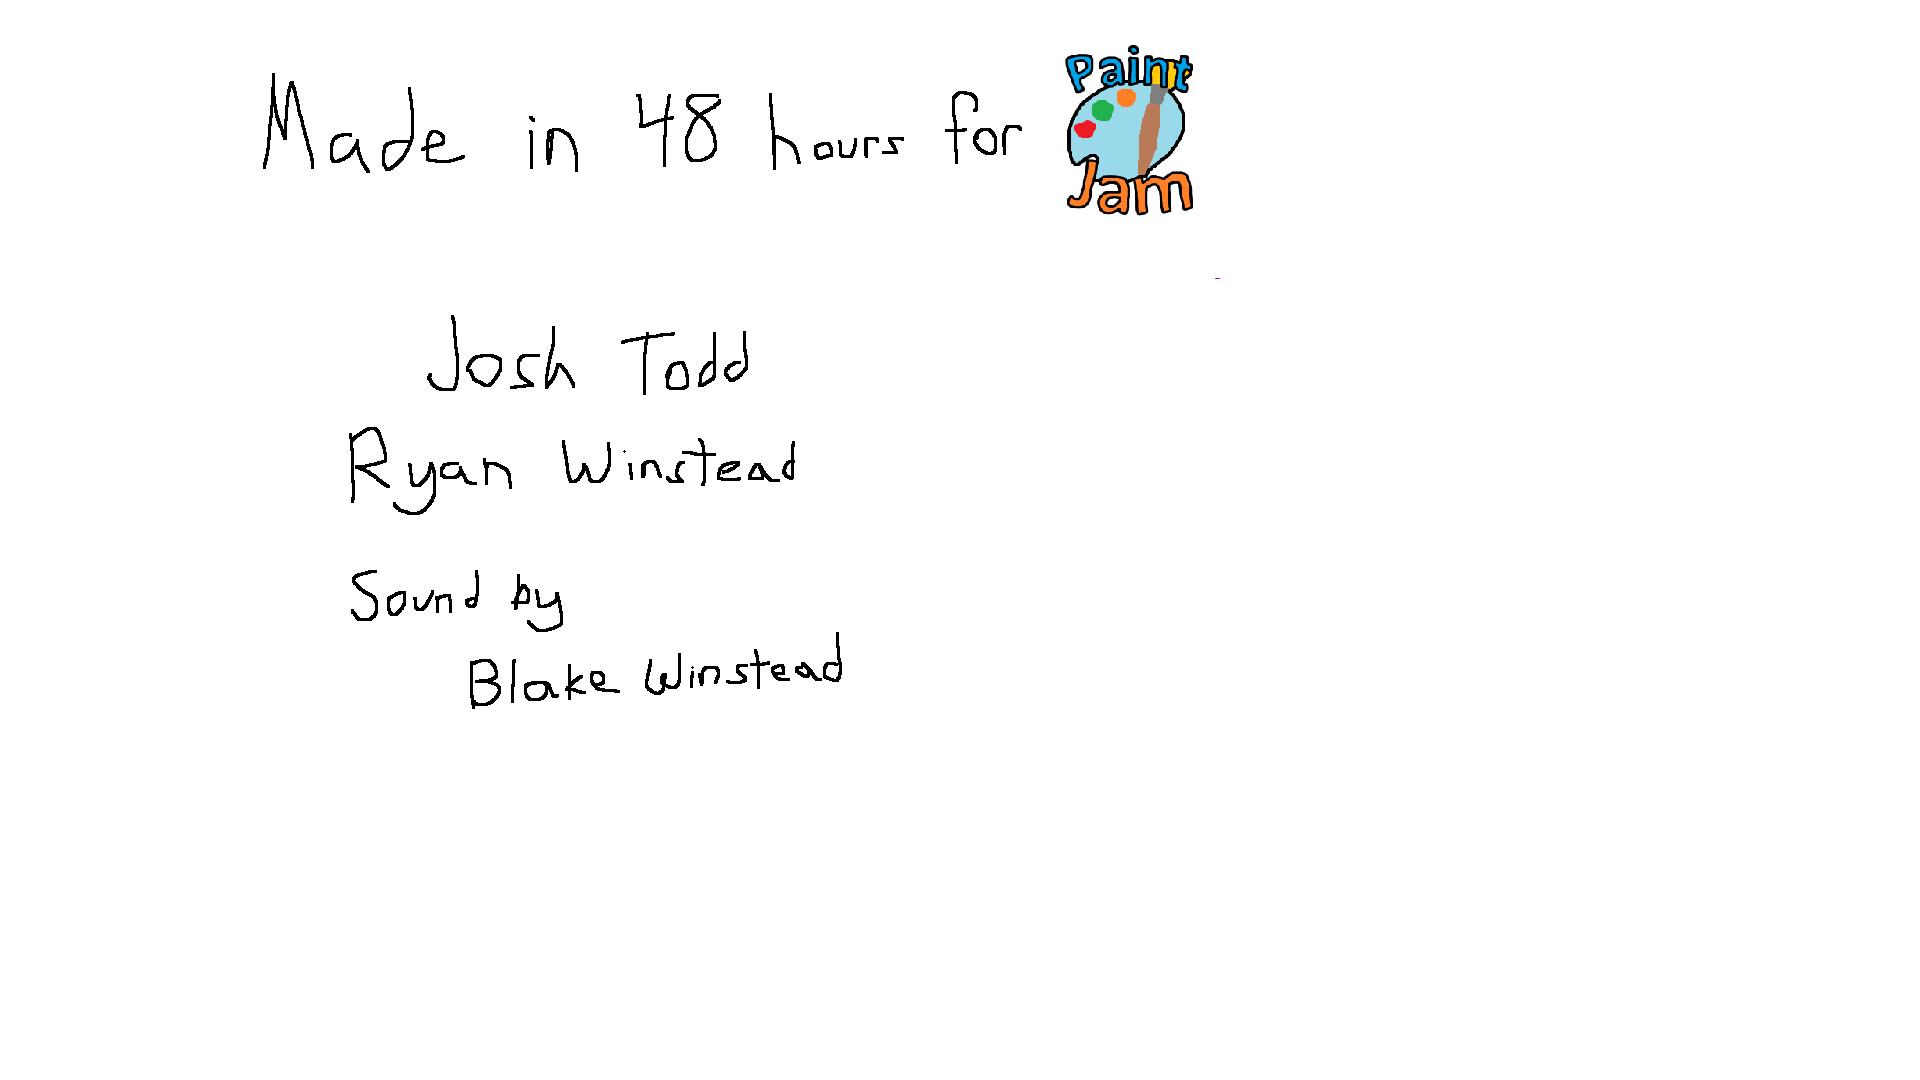 Made in 48 hours for Paint Jam
Josh Todd
Ryan Winstead
Sound by
Blake Winstead